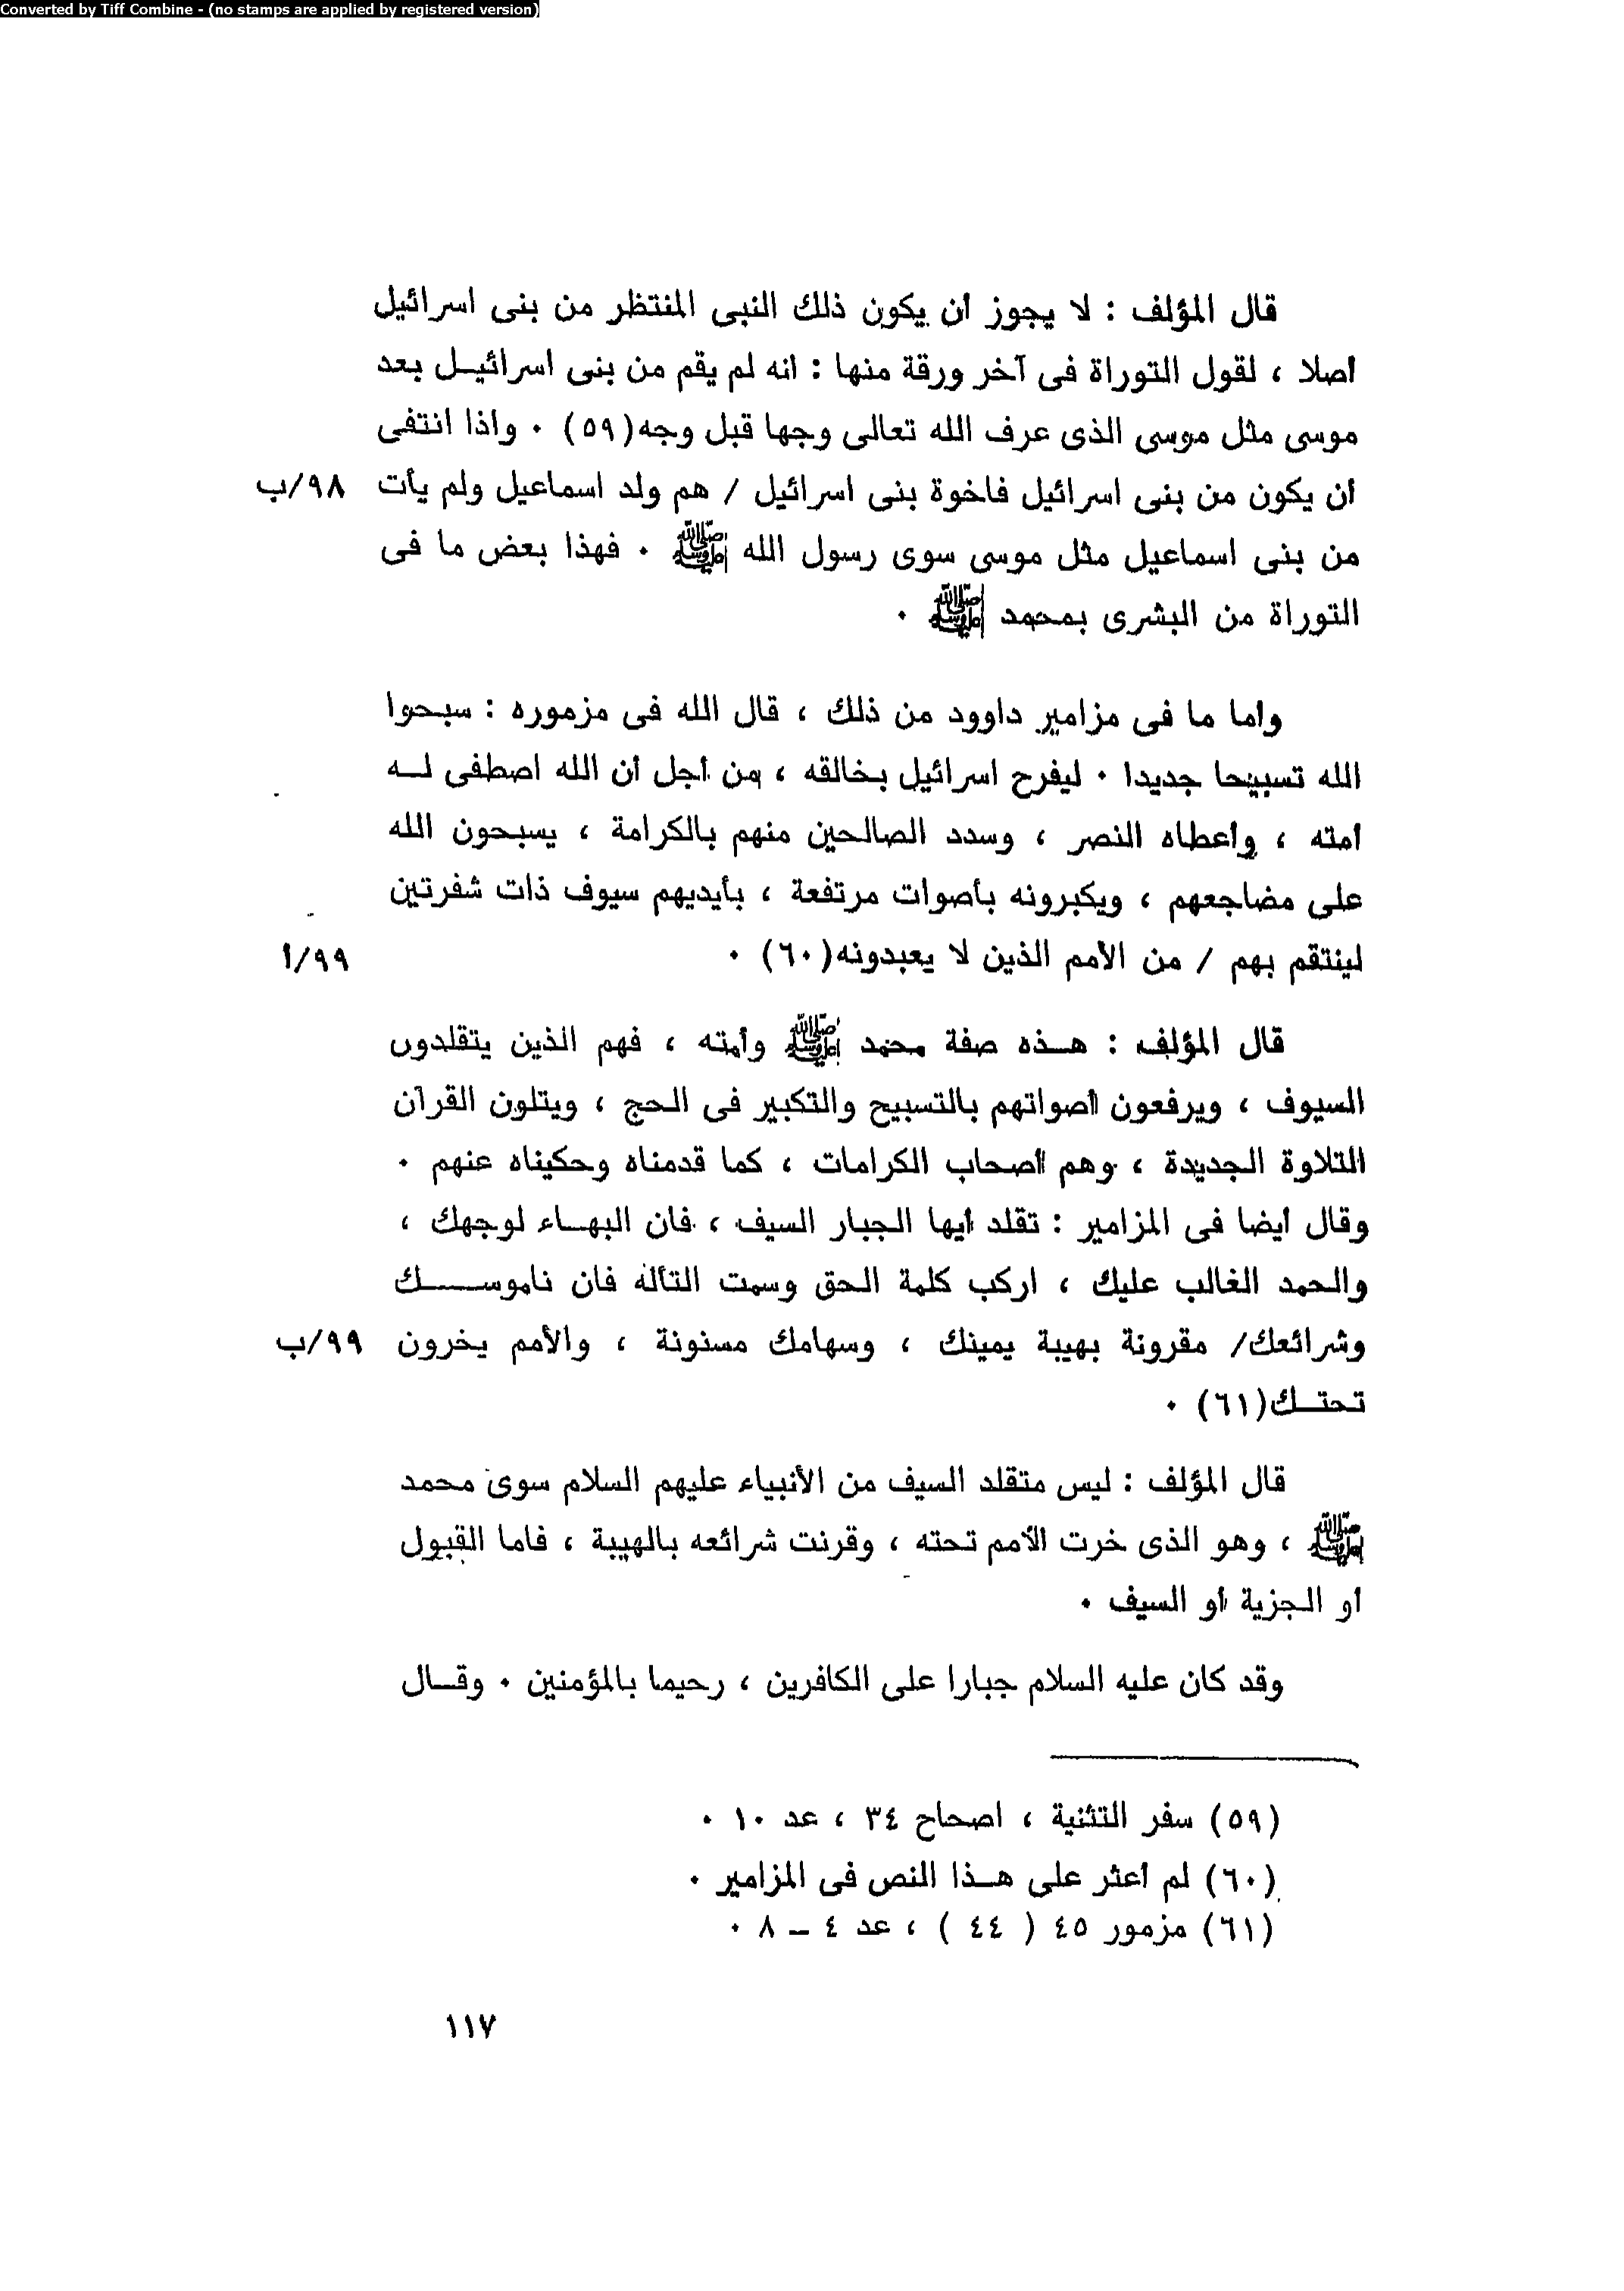 Converted by Tiff Combine - (no stamps are applied by registered version)
قال المؤلف : لا يجوز أن يكون ذلك النبى المنتظر من بنى اسرائيل
أصلا ، لقول التوراة فى آخر ورقة منها : انه لم يقم من بنى اسرائيـل بعد
موسى مثل موسى الذى عرف الله تعالى وجها قبل وجه(٥٩) ٠ واذا انتفى
أن يكون من بنى اسرائيل فاخوة بنى اسرائيل / هم ولد اسماعيل ولم يأت ٩٨/ب
من بنى اسماعيل مثل موسى سوى رسول الله ﷺ ٠ فهذا بعض ما فى
التوراة من البشرى بمحمد ﷺ ٠
وأما ما فى مزامير داوود من ذلك ، قال الله فى مزموره : سبحوا
الله تسبيحا جديدا ٠ ليفرح اسرائيل بخالقه ، من أجل أن الله اصطفى لــه
أمته ، وأعطاه النصر ، وسدد الصالحين منهم بالكرامة ، يسبحون الله
على مضاجعهم ، ويكبرونه بأصوات مرتفعة ، بأيديهم سيوف ذات شفرتين
لينتقم بهم / من الأمم الذين لا يعبدونه(٦٠) ٠ ٩٩/أ
قال المؤلف : هــذه صفة محمد ﷺ وأمته ، فهم الذين يتقلدون
السيوف ، ويرفعون أصواتهم بالتسبيح والتكبير فى الحج ، ويتلون القرآن
التلاوة الجديدة ، وهم أصحاب الكرامات ، كما قدمناه وحكيناه عنهم ٠
وقال أيضا فى المزامير : تقلد أيها الجبار السيف ، فان البهــاء لوجهك ،
والحمد الغالب عليك ، اركب كلمة الحق وسمت التأله فان ناموســــك
وشرائعك/ مقرونة بهيبة يمينك ، وسهامك مسنونة ، والأمم يخرون ٩٩/ب
تحتــك(٦١) ٠
قال المؤلف : ليس متقلد السيف من الأنبياء عليهم السلام سوى محمد
ﷺ ، وهو الذى خرت الأمم تحته ، وقرنت شرائعه بالهيبة ، فاما القبول
أو الجزية أو السيف ٠
وقد كان عليه السلام جبارا على الكافرين ، رحيما بالمؤمنين ٠ وقــال
(٥٩) سفر التثنية ، اصحاح ٣٤ ، عد ١٠ ٠
(٦٠) لم أعثر على هــذا النص فى المزامير ٠
(٦١) مزمور ٤٥ ( ٤٤ ) ، عد ٤ – ٨ ٠
١١٧